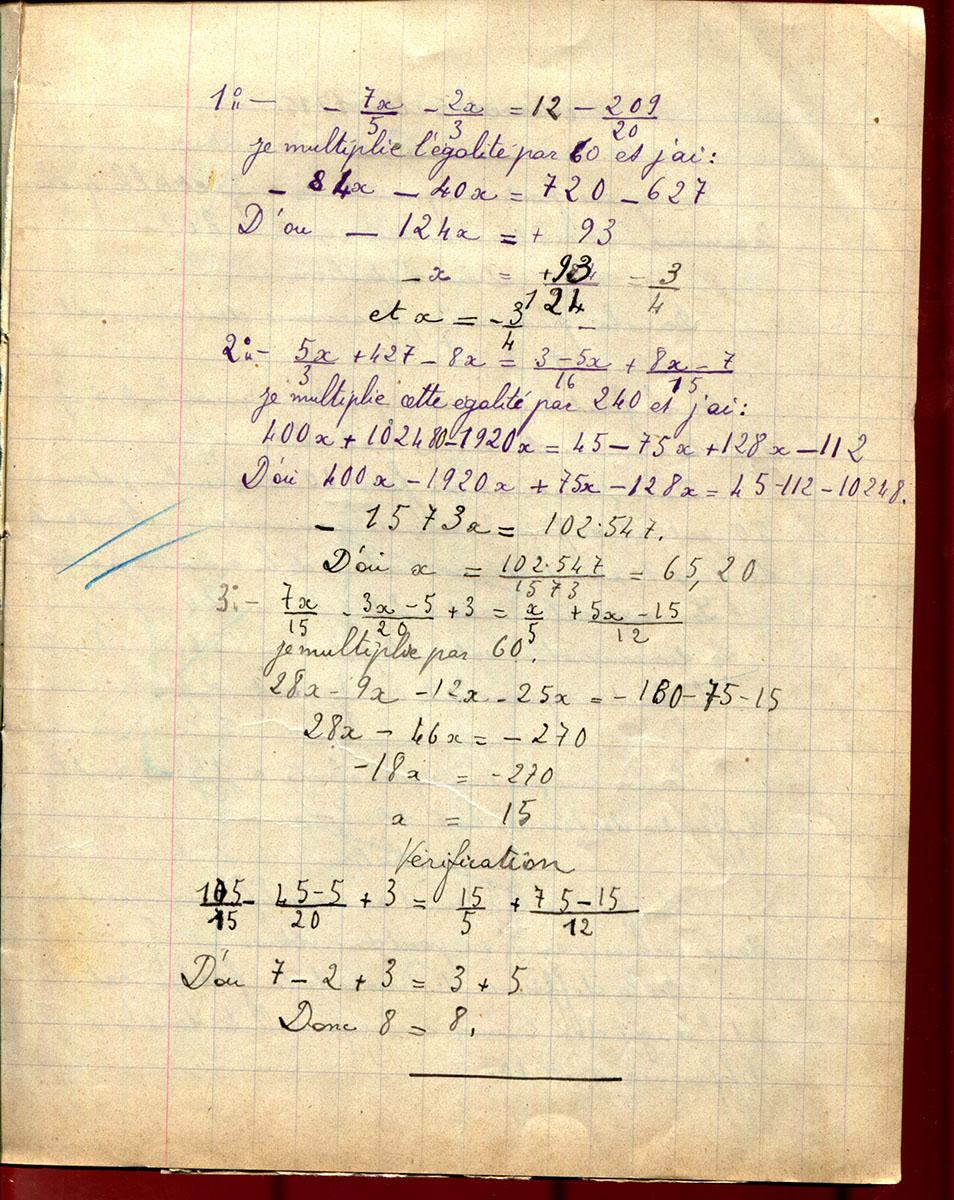 1° — - 7x/5 - 2x/3 = 12 - 209/20
je multiplie l'égalité par 60 et j'ai :
- 84x - 40x = 720 - 627
D'où - 124x = + 93
- x = +93/124 = 3/4
et x = - 3/4
2° - 5x/3 + 427 - 8x = 3-5x/16 + 8x-7/15
je multiplie cette egalité par 240 et j'ai :
400x + 102480 - 1920x = 45 - 75x + 128x - 112
D'où 400x - 1920x + 75x - 128x = 45-112-10248.
- 1573x = 102.547.
D'où x = 102.547/1573 = 65,20
3° - 7x/15 - 3x-5/20 + 3 = x/5 + 5x-15/12
je multiplie par 60.
28x - 9x - 12x - 25x = - 180 - 75 - 15
28x - 46x = - 270
- 18x = - 270
x = 15
Vérification
105/15 - 45-5/20 + 3 = 15/5 + 75-15/12
D'où 7 - 2 + 3 = 3 + 5
Donc 8 = 8.